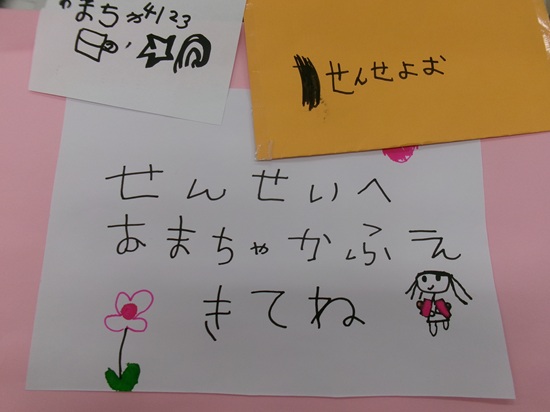 まちが4123
せんせよむ
せんせいへ
おまちゃかふえ
きてね